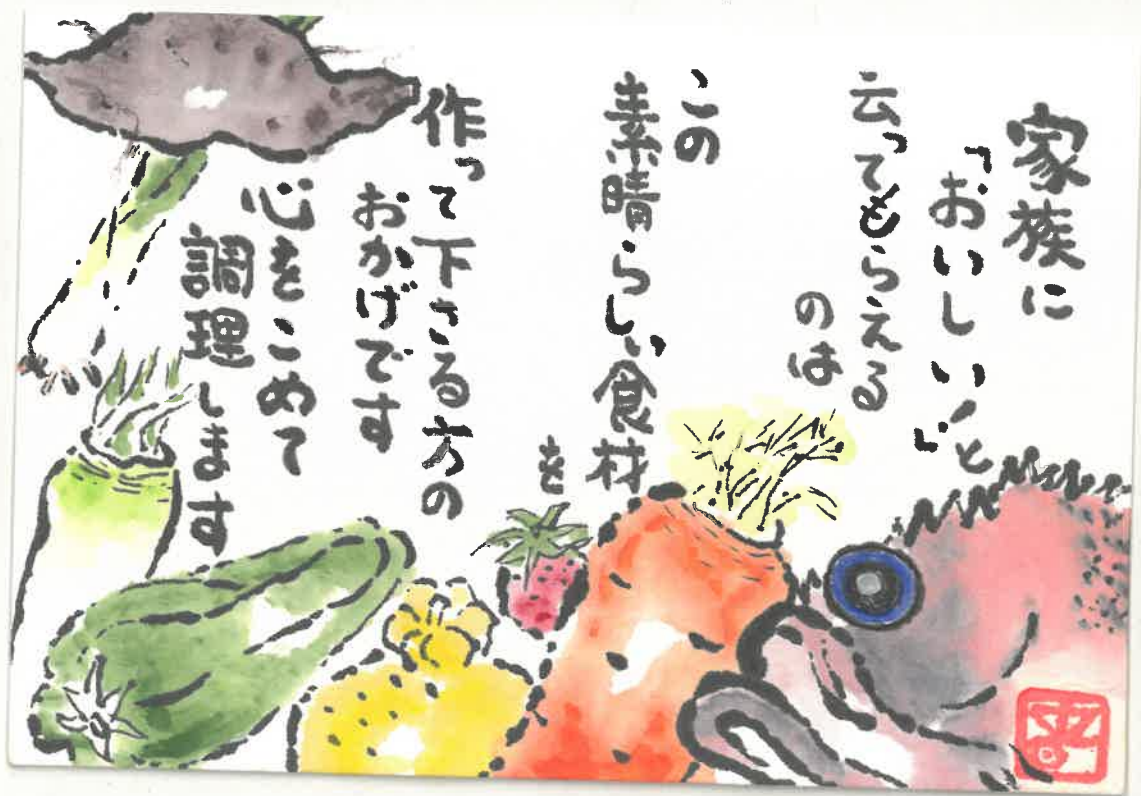 家族に
「おいしい！」と
云ってもらえる
のは
この
素晴らしい食材
を
作って下さる方の
おかげです
心をこめて
調理します